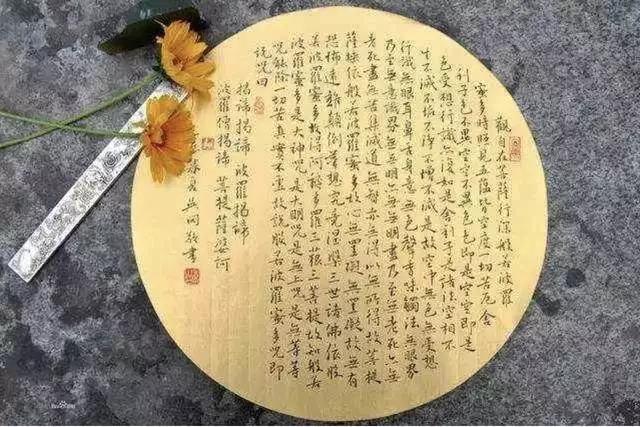 觀自在菩薩行深般若波羅
蜜多時照見五蘊皆空度一切苦厄舍
利子色不異空空不異色色即是空空即是
色受想行識亦復如是舍利子是諸法空相不
生不滅不垢不淨不增不減是故空中無色無受想
行識無眼耳鼻舌身意無色聲香味觸法無眼界
乃至無意識界無無明亦無無明盡乃至無老死亦無
老死盡無苦集滅道無智亦無得以無所得故菩提
薩埵依般若波羅蜜多故心無罣礙無罣礙故無有
恐怖遠離顛倒夢想究竟涅槃三世諸佛依般
若波羅蜜多故得阿耨多羅三藐三菩提故知般若
波羅蜜多是大神咒是大明咒是無上咒是無等等
咒能除一切苦真實不虛故說般若波羅蜜多咒即
說咒曰
揭諦揭諦 波羅揭諦
波羅僧揭諦 菩提薩婆訶
書